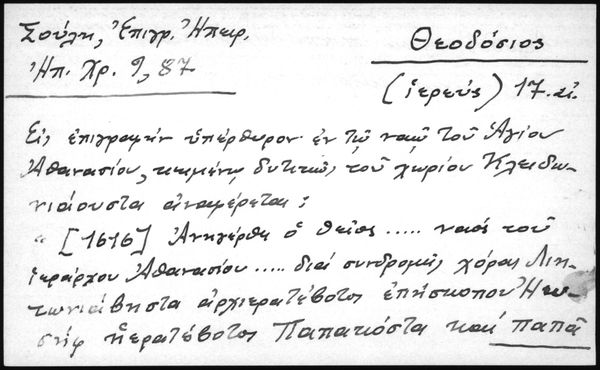 Σούλη, Ἐπιγρ. Ἠπειρ.
Ἠπ. Χρ. 9, 87
Θεοδόσιος
(ἱερεύς) 17. αἰ.
Εἰς ἐπιγραφὴν ὑπέρθυρον ἐν τῷ ναῷ τοῦ Ἁγίου
Ἀθανασίου, κειμένῳ δυτικῶς τοῦ χωρίου Κλειδω-
νιάουστα ἀναφέρεται:
"[1616] Ἀνηγέρθη ὁ θεῖος ..... ναός τοῦ
ἱεράρχου Ἀθανασίου ..... διά συνδρομῆς χόρας Λιη-
τωνιάβηστα ἀρχιερατέβοτος ἐπήσκοπου
ἡερατέβοτος Παπακόστα καί παπᾶ